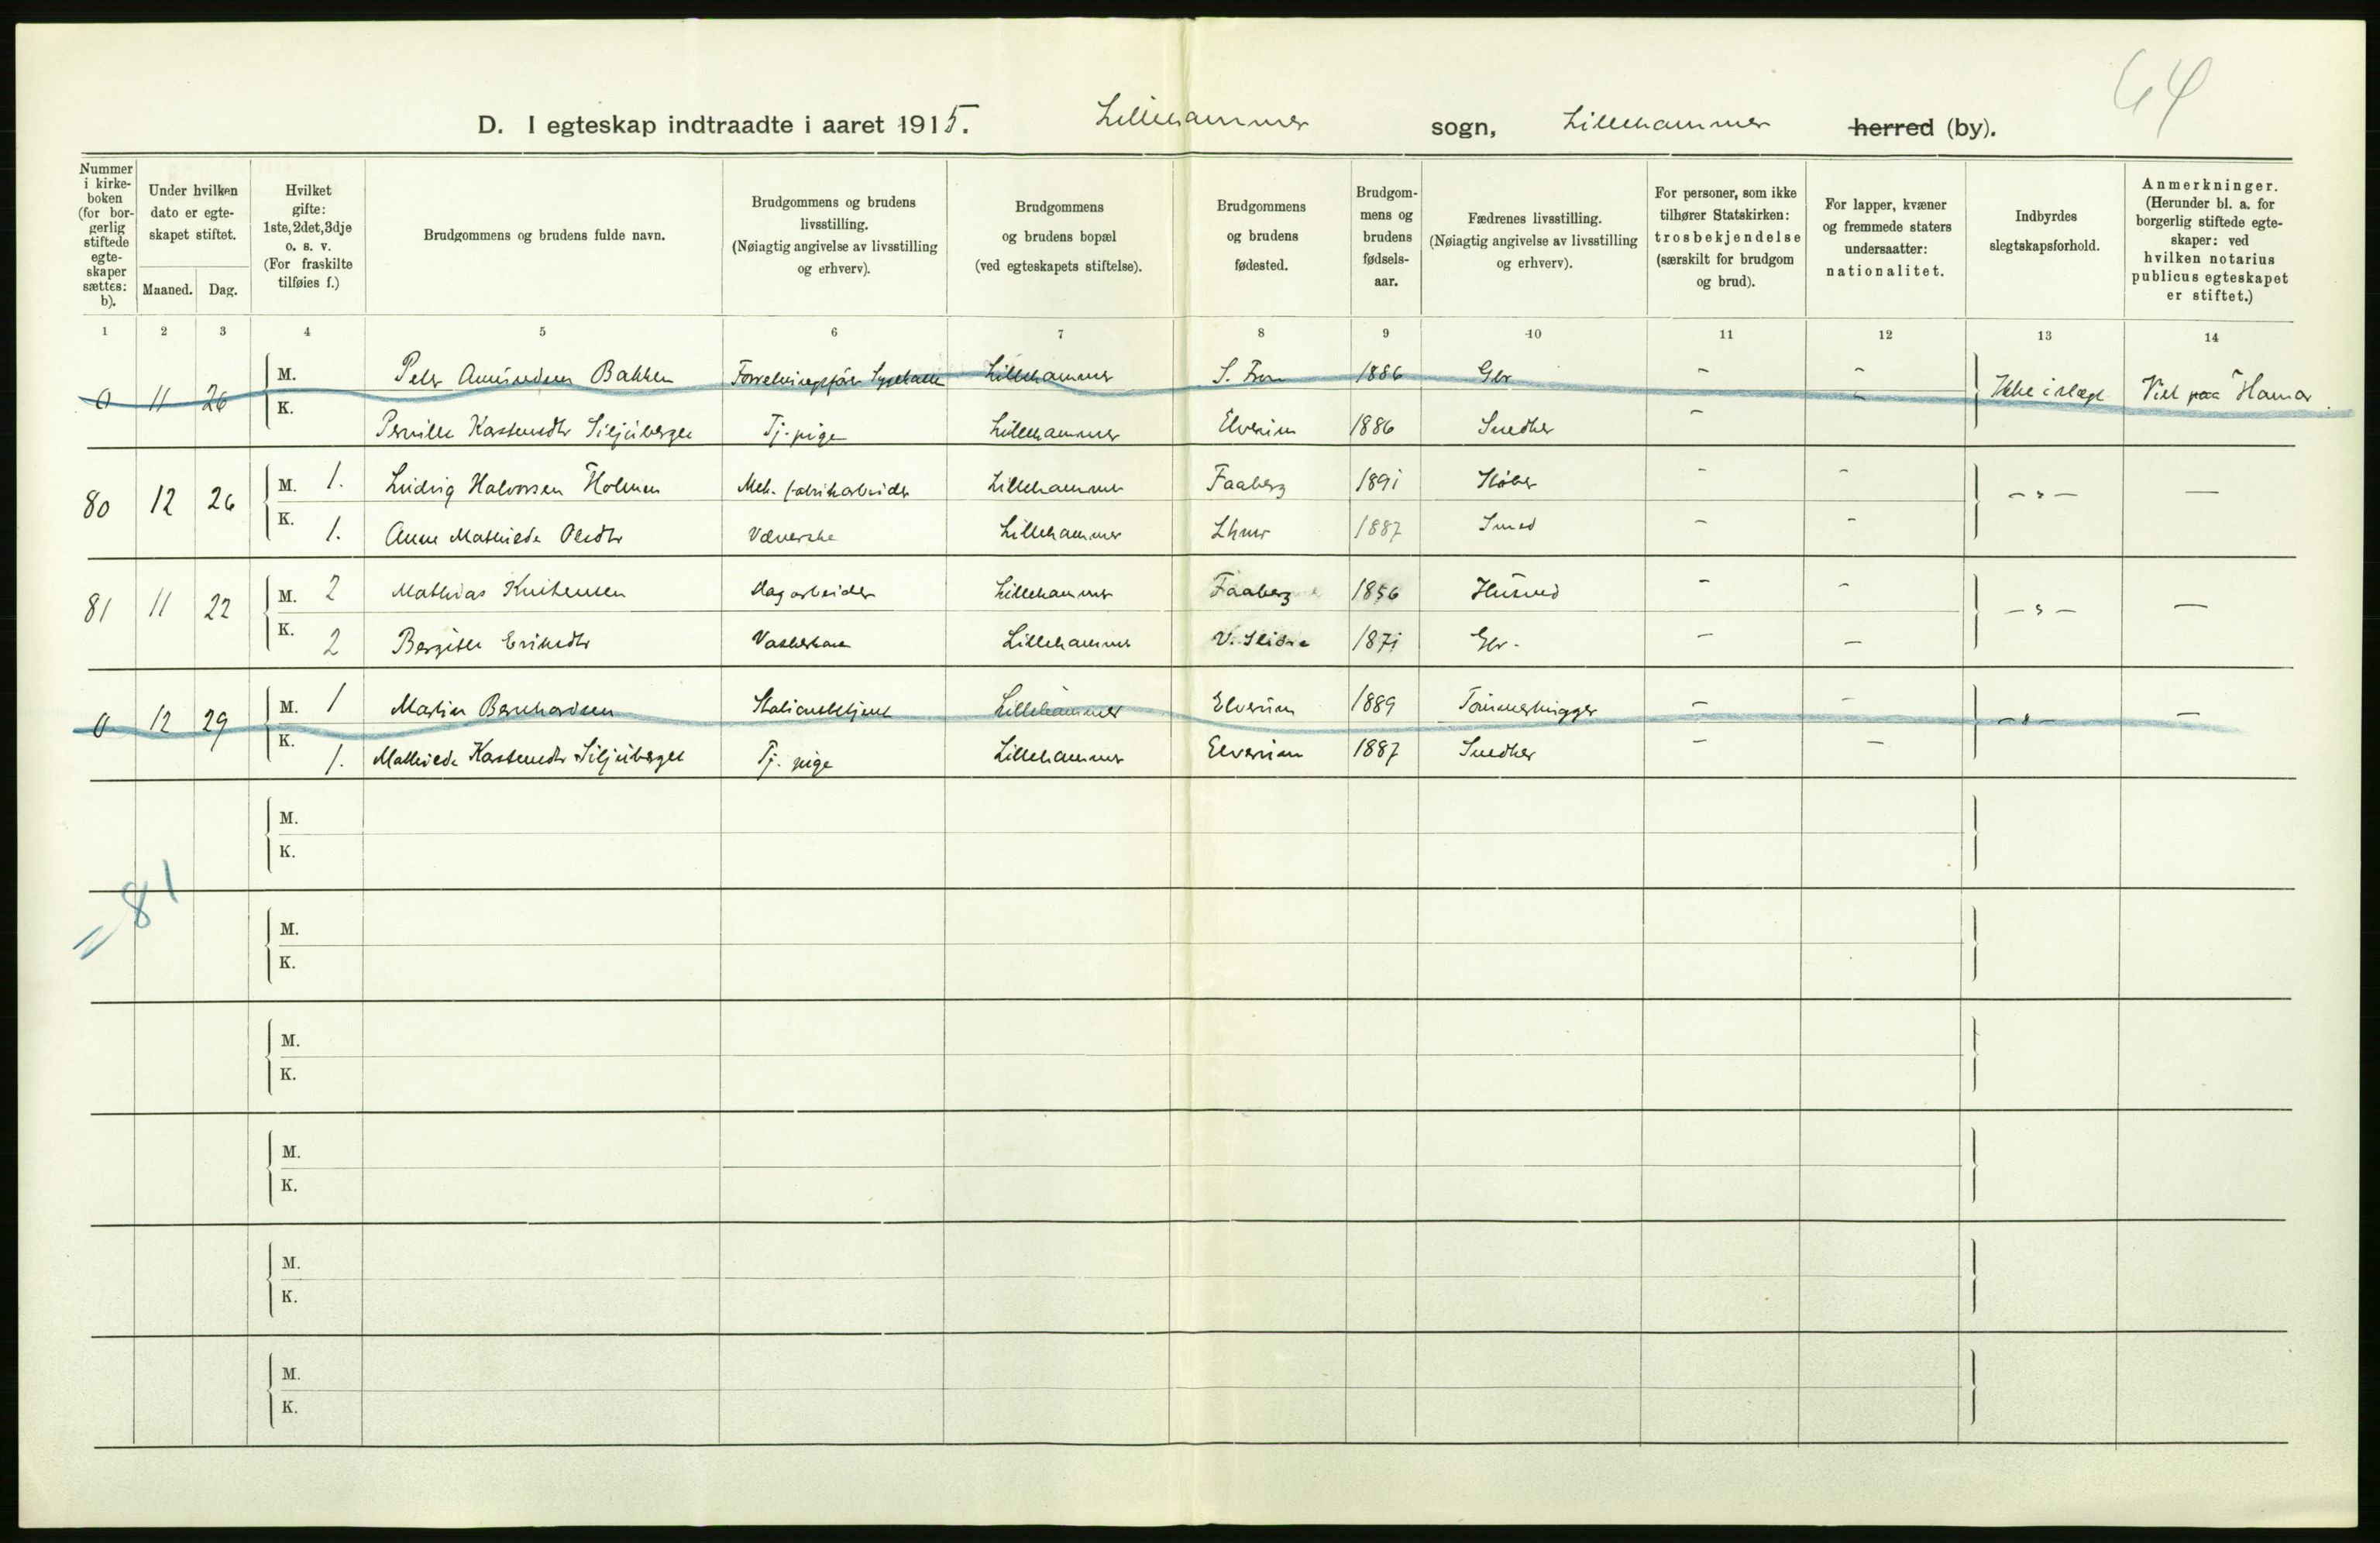 64
D. I egteskap indtraadte i aaret 1915. Lillehammer sogn, Lillehammer herred (by).
Nummer i kirkeboken (for borgerlig stiftede egteskaper sættes: b).
Under hvilken dato er egteskapet stiftet.
Maaned. Dag.
Hvilket gifte: 1ste, 2det, 3dje o. s. v. (For fraskilte tilføies f.)
Brudgommens og brudens fulde navn.
Brudgommens og brudens livsstilling. (Nøiagtig angivelse av livsstilling og erhverv).
Brudgommens og brudens bopæl (ved egteskapets stiftelse).
Brudgommens og brudens fødested.
Brudgommens og brudens fødselsaar.
Fædrenes livsstilling. (Nøiagtig angivelse av livsstilling og erhverv).
For personer, som ikke tilhører Statskirken: trosbekjendelse (særskilt for brudgom og brud).
For lapper, kvæner og fremmede staters undersaatter: nationalitet.
Indbyrdes slegtskapsforhold.
Anmerkninger. (Herunder bl. a. for borgerlig stiftede egteskaper: ved hvilken notarius publicus egteskapet er stiftet.)
1 2 3 4 5 6 7 8 9 10 11 12 13 14
0 11 26 M. Peder Amundsen Bakken Lillehammer S. Fron 1886 Gbr - - Ikke i slægt Viet paa Hamar.
K. Pernille Karstensdtr Siljuberget Tj. pige Lillehammer Elverum 1886 Snedker -
80 12 26 M. 1. Ludvig Halvorsen Holmen Mek. fabrikarbeider Lillehammer Faaberg 1891 - - - " - —
K. 1. Anne Mathilde Olsdtr Væverske Lillehammer Lhmr 1887 Smed - -
81 11 22 M. 2 Mathias Knutsen Lillehammer Faaberg 1856 Husmd - - - " - —
K. 2 Bergitte Eriksdtr Vaskekone Lillehammer V. Slidre 1871 Gbr. - -
0 12 29 M. 1 Martin Bernhardsen Stationsbetjent Lillehammer Elverum 1889 Tømmerhugger - - - " - —
K. 1. Mathilde Karstensdtr Siljuberget Tj. pige Lillehammer Elverum 1887 Snedker - -
M.
K.
= 81
M.
K.
M.
K.
M.
K.
M.
K.
M.
K.